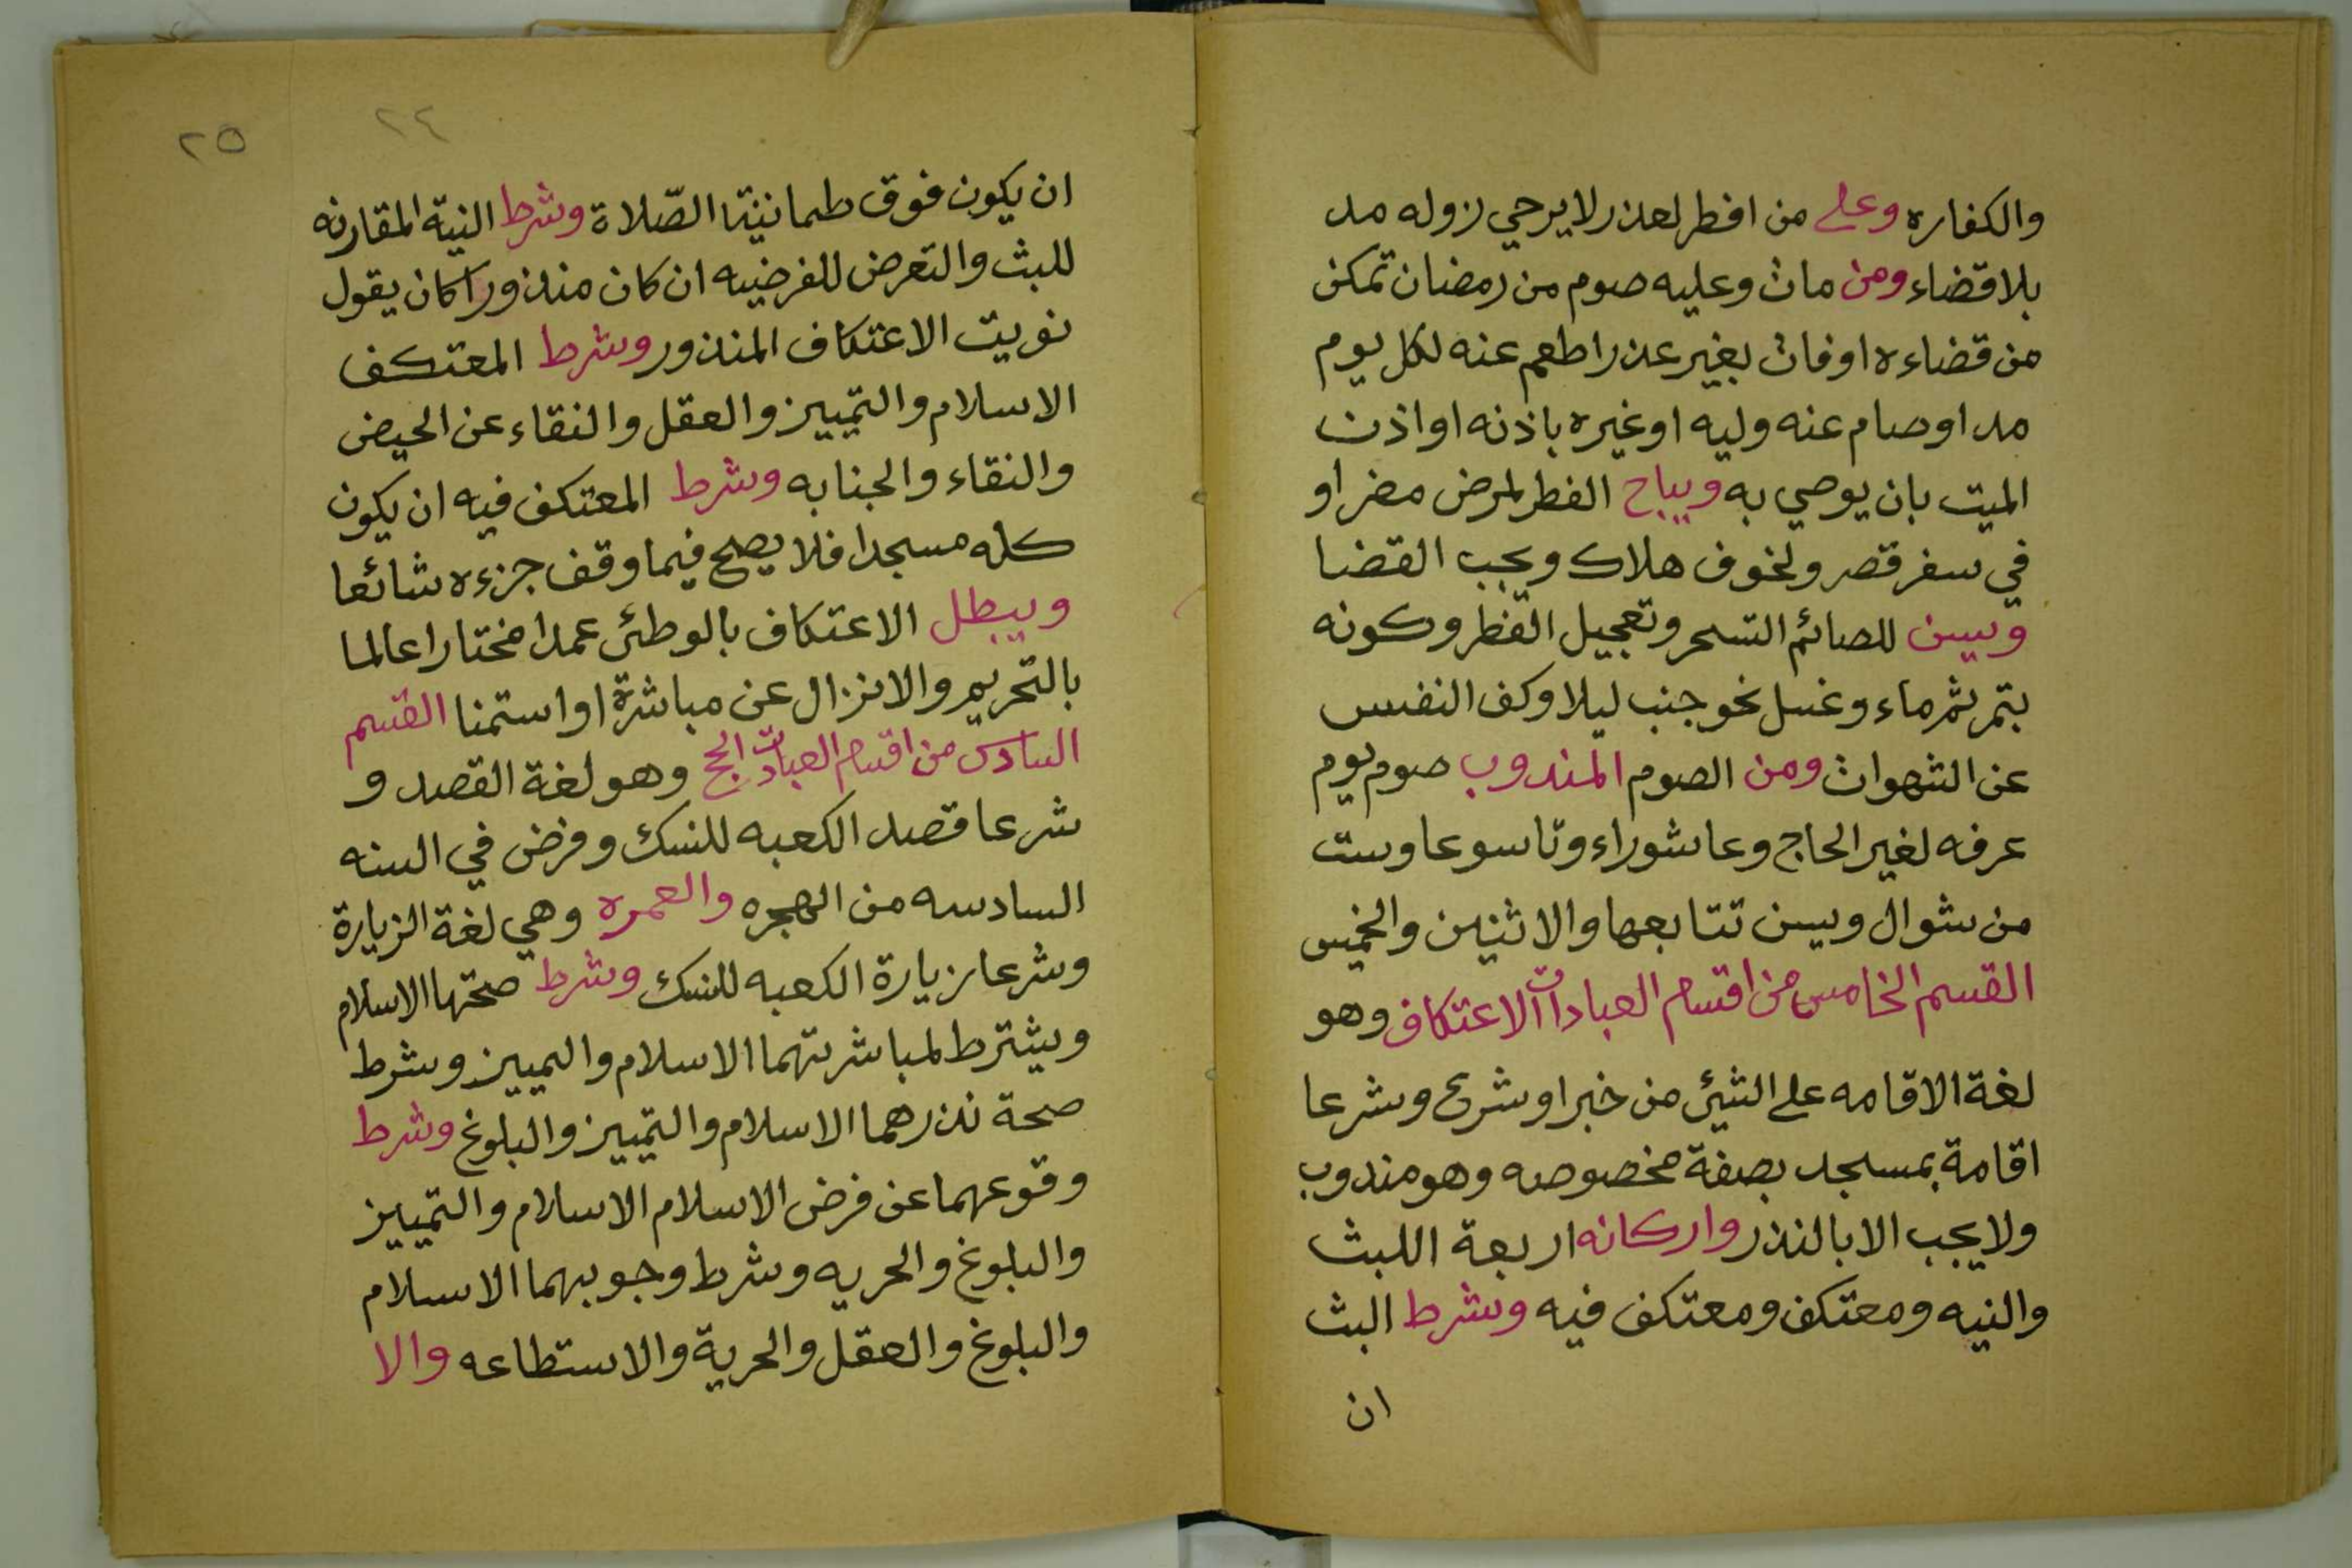 والكفاره وعلى من افطر لعذر لا يرجي زوله مد
بلا قضاء ومن مات وعليه صوم من رمضان تمكن
من قضاءه او فات بغير عذر اطعم عنه لكل يوم
مد او صام عنه وليه او غيره باذنه او اذن
الميت بان يوصي به ويباح الفطر لمرض مضر او
في سفر قصر ولخوف هلاك ويجب القضا
ويسن للصائم التسحر وتعجيل الفطر وكونه
بتمر ثم ماء وغسل نحو جنب ليلا وكف النفس
عن الشهوات ومن الصوم المندوب صوم يوم
عرفه لغير الحاج وعاشوراء وتاسوعا وست
من شوال ويسن تتابعها والاثنين والخميس
القسم الخامس من اقسام العبادات الاعتكاف وهو
لغة الاقامه على الشئ من خير او شر وشرعا
اقامة بمسجد بصفة مخصوصه وهو مندوب
ولا يجب الا بالنذر واركانه اربعة اللبث
والنيه ومعتكف ومعتكف فيه وشرط البث
ان
٢٤
٢٥
ان يكون فوق طمانينة الصّلاة وشرط النية المقارنه
للبث والتعرض للفرضيه ان كان منذورا كان يقول
نويت الاعتكاف المنذور وشرط المعتكف
الاسلام والتمييز والعقل والنقاء عن الحيض
والنقاء والجنابه وشرط المعتكف فيه ان يكون
كله مسجدا فلا يصح فيما وقف جزءه شائعا
ويبطل الاعتكاف بالوطئ عمدا مختارا عالما
بالتحريم والانزال عن مباشرة او استمنا القسم
السادس من اقسام العبادات الحج وهو لغة القصد و
شرعا قصد الكعبه للنسك وفرض في السنه
السادسه من الهجره والعمره وهي لغة الزيارة
وشرعا زيارة الكعبه للنسك وشرط صحتها الاسلام
ويشترط لمباشرتهما الاسلام والتمييز وشرط
صحة نذرهما الاسلام والتمييز والبلوغ وشرط
وقوعهما عن فرض الاسلام الاسلام والتمييز
والبلوغ والحريه وشرط وجوبهما الاسلام
والبلوغ والعقل والحرية والاستطاعه والا